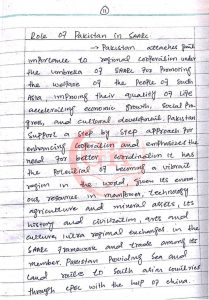 11
Role of Pakistan in Saarc
→ Pakistan attaches great
importance to regional cooperation under
the umbrella of SAARC for promoting
the welfare of the people of South
Asia improving their quality of life
accelerating economic growth, social pro
gress, and cultural development. Pakistan
support a step by step approach for
enhancing cooperation and emphasized the
need for better coordination it has
the potential of becoming a vibrant
region in the world, given its enorm
ous resources in manpower, technology
agriculture and mineral assets, its
history and civilization, arts and
culture intra regional exchanges in the
SAARC framework and trade among its
member. Pakistan Providing sea and
land routes to South asian countries
through cpec with the help of china.